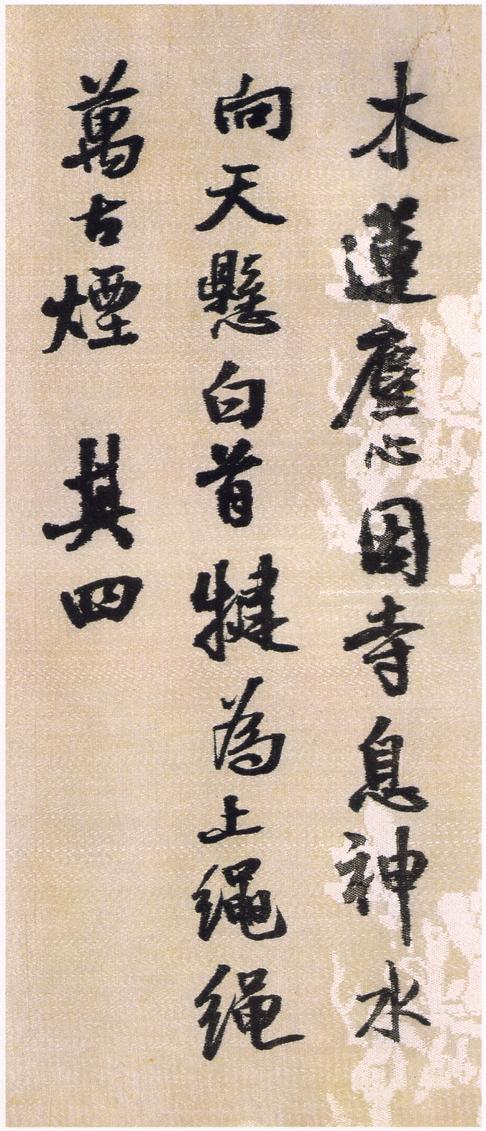 木蓮塵心因寺息神水
向天懸白首犍為上繩繩
萬古煙 其四